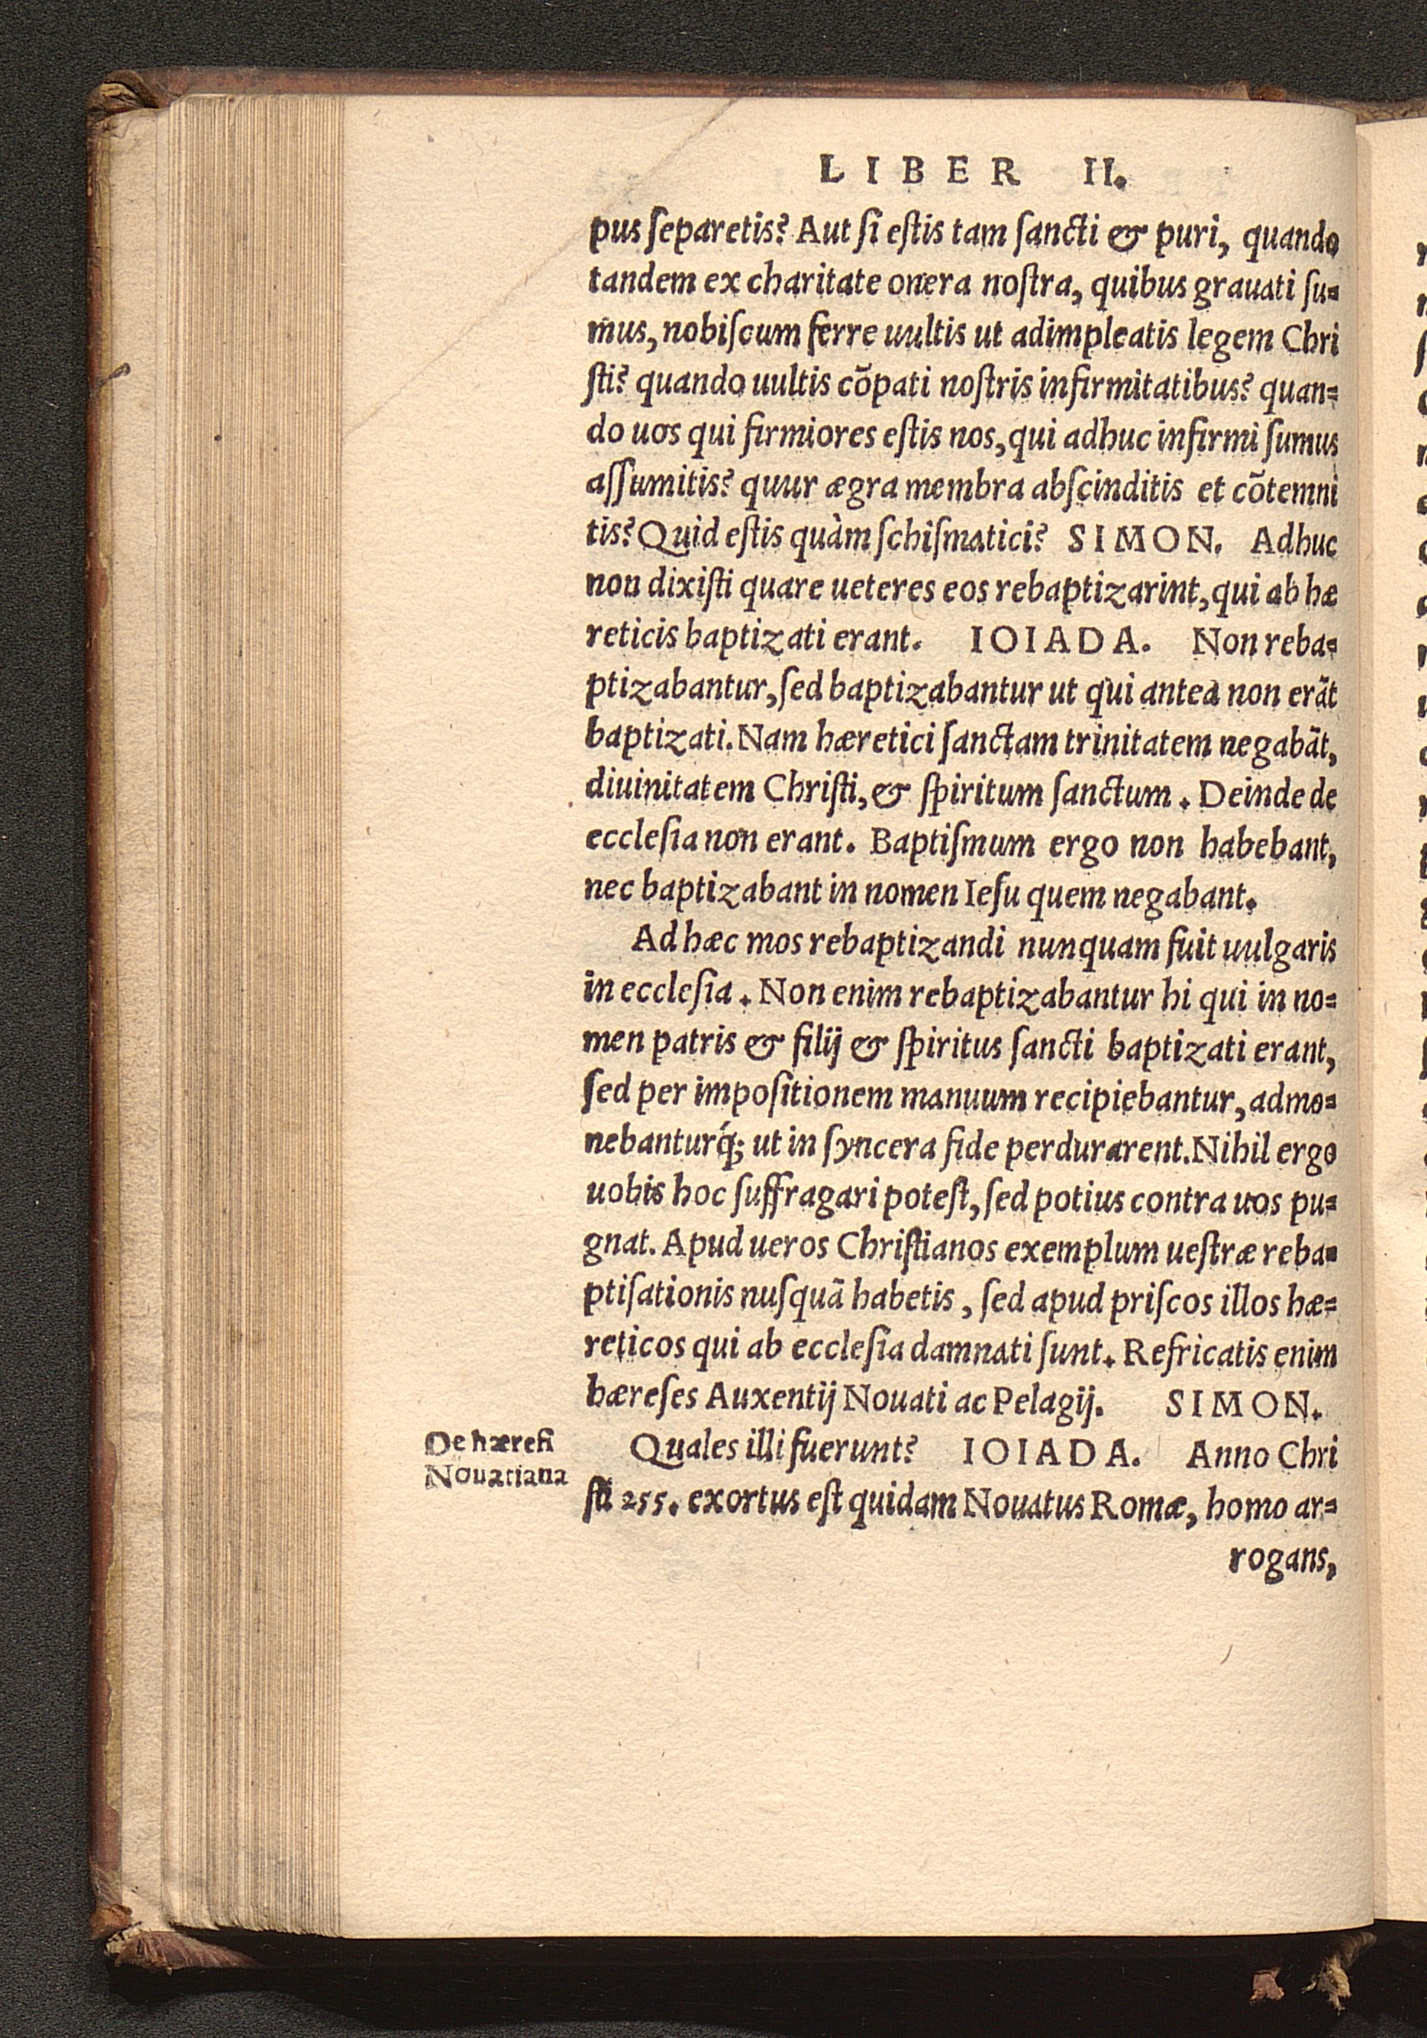 LIBER II.
pus ſeparetis? Aut ſi eſtis tam ſancti & puri, quando
tandem ex charitate onera noſtra, quibus grauati ſu-
mus, nobiſcum ferre uultis ut adimpleatis legem Chri
ſti? quando uultis cõpati noſtris infirmitatibus? quan-
do uos qui firmiores eſtis nos, qui adhuc infirmi ſumus
aſſumitis? quur ægra membra abſcinditis et cõtemni
tis? Quid eſtis quàm ſchiſmatici? SIMON. Adhuc
non dixiſti quare ueteres eos rebaptizarint, qui ab hæ
reticis baptizati erant. IOIADA. Non reba-
ptizabantur, ſed baptizabantur ut qui antea non erãt
baptizati. Nam hæretici ſanctam trinitatem negabãt,
diuinitatem Chriſti, & ſpiritum ſanctum. Deinde de
eccleſia non erant. Baptiſmum ergo non habebant,
nec baptizabant in nomen Ieſu quem negabant.
Ad hæc mos rebaptizandi nunquam fuit uulgaris
in eccleſia. Non enim rebaptizabantur hi qui in no-
men patris & filij & ſpiritus ſancti baptizati erant,
ſed per impoſitionem manuum recipiebantur, admo-
nebanturq́; ut in ſyncera fide perdurarent. Nihil ergo
uobis hoc ſuffragari poteſt, ſed potius contra uos pu-
gnat. Apud ueros Chriſtianos exemplum ueſtræ reba-
ptiſationis nuſquã habetis, ſed apud priſcos illos hæ-
reticos qui ab eccleſia damnati ſunt. Refricatis enim
hæreſes Auxentij Nouati ac Pelagij. SIMON.
De hæreſi
Nouatiana
Quales illi fuerunt? IOIADA. Anno Chri
ſti 255. exortus eſt quidam Nouatus Romæ, homo ar-
rogans,